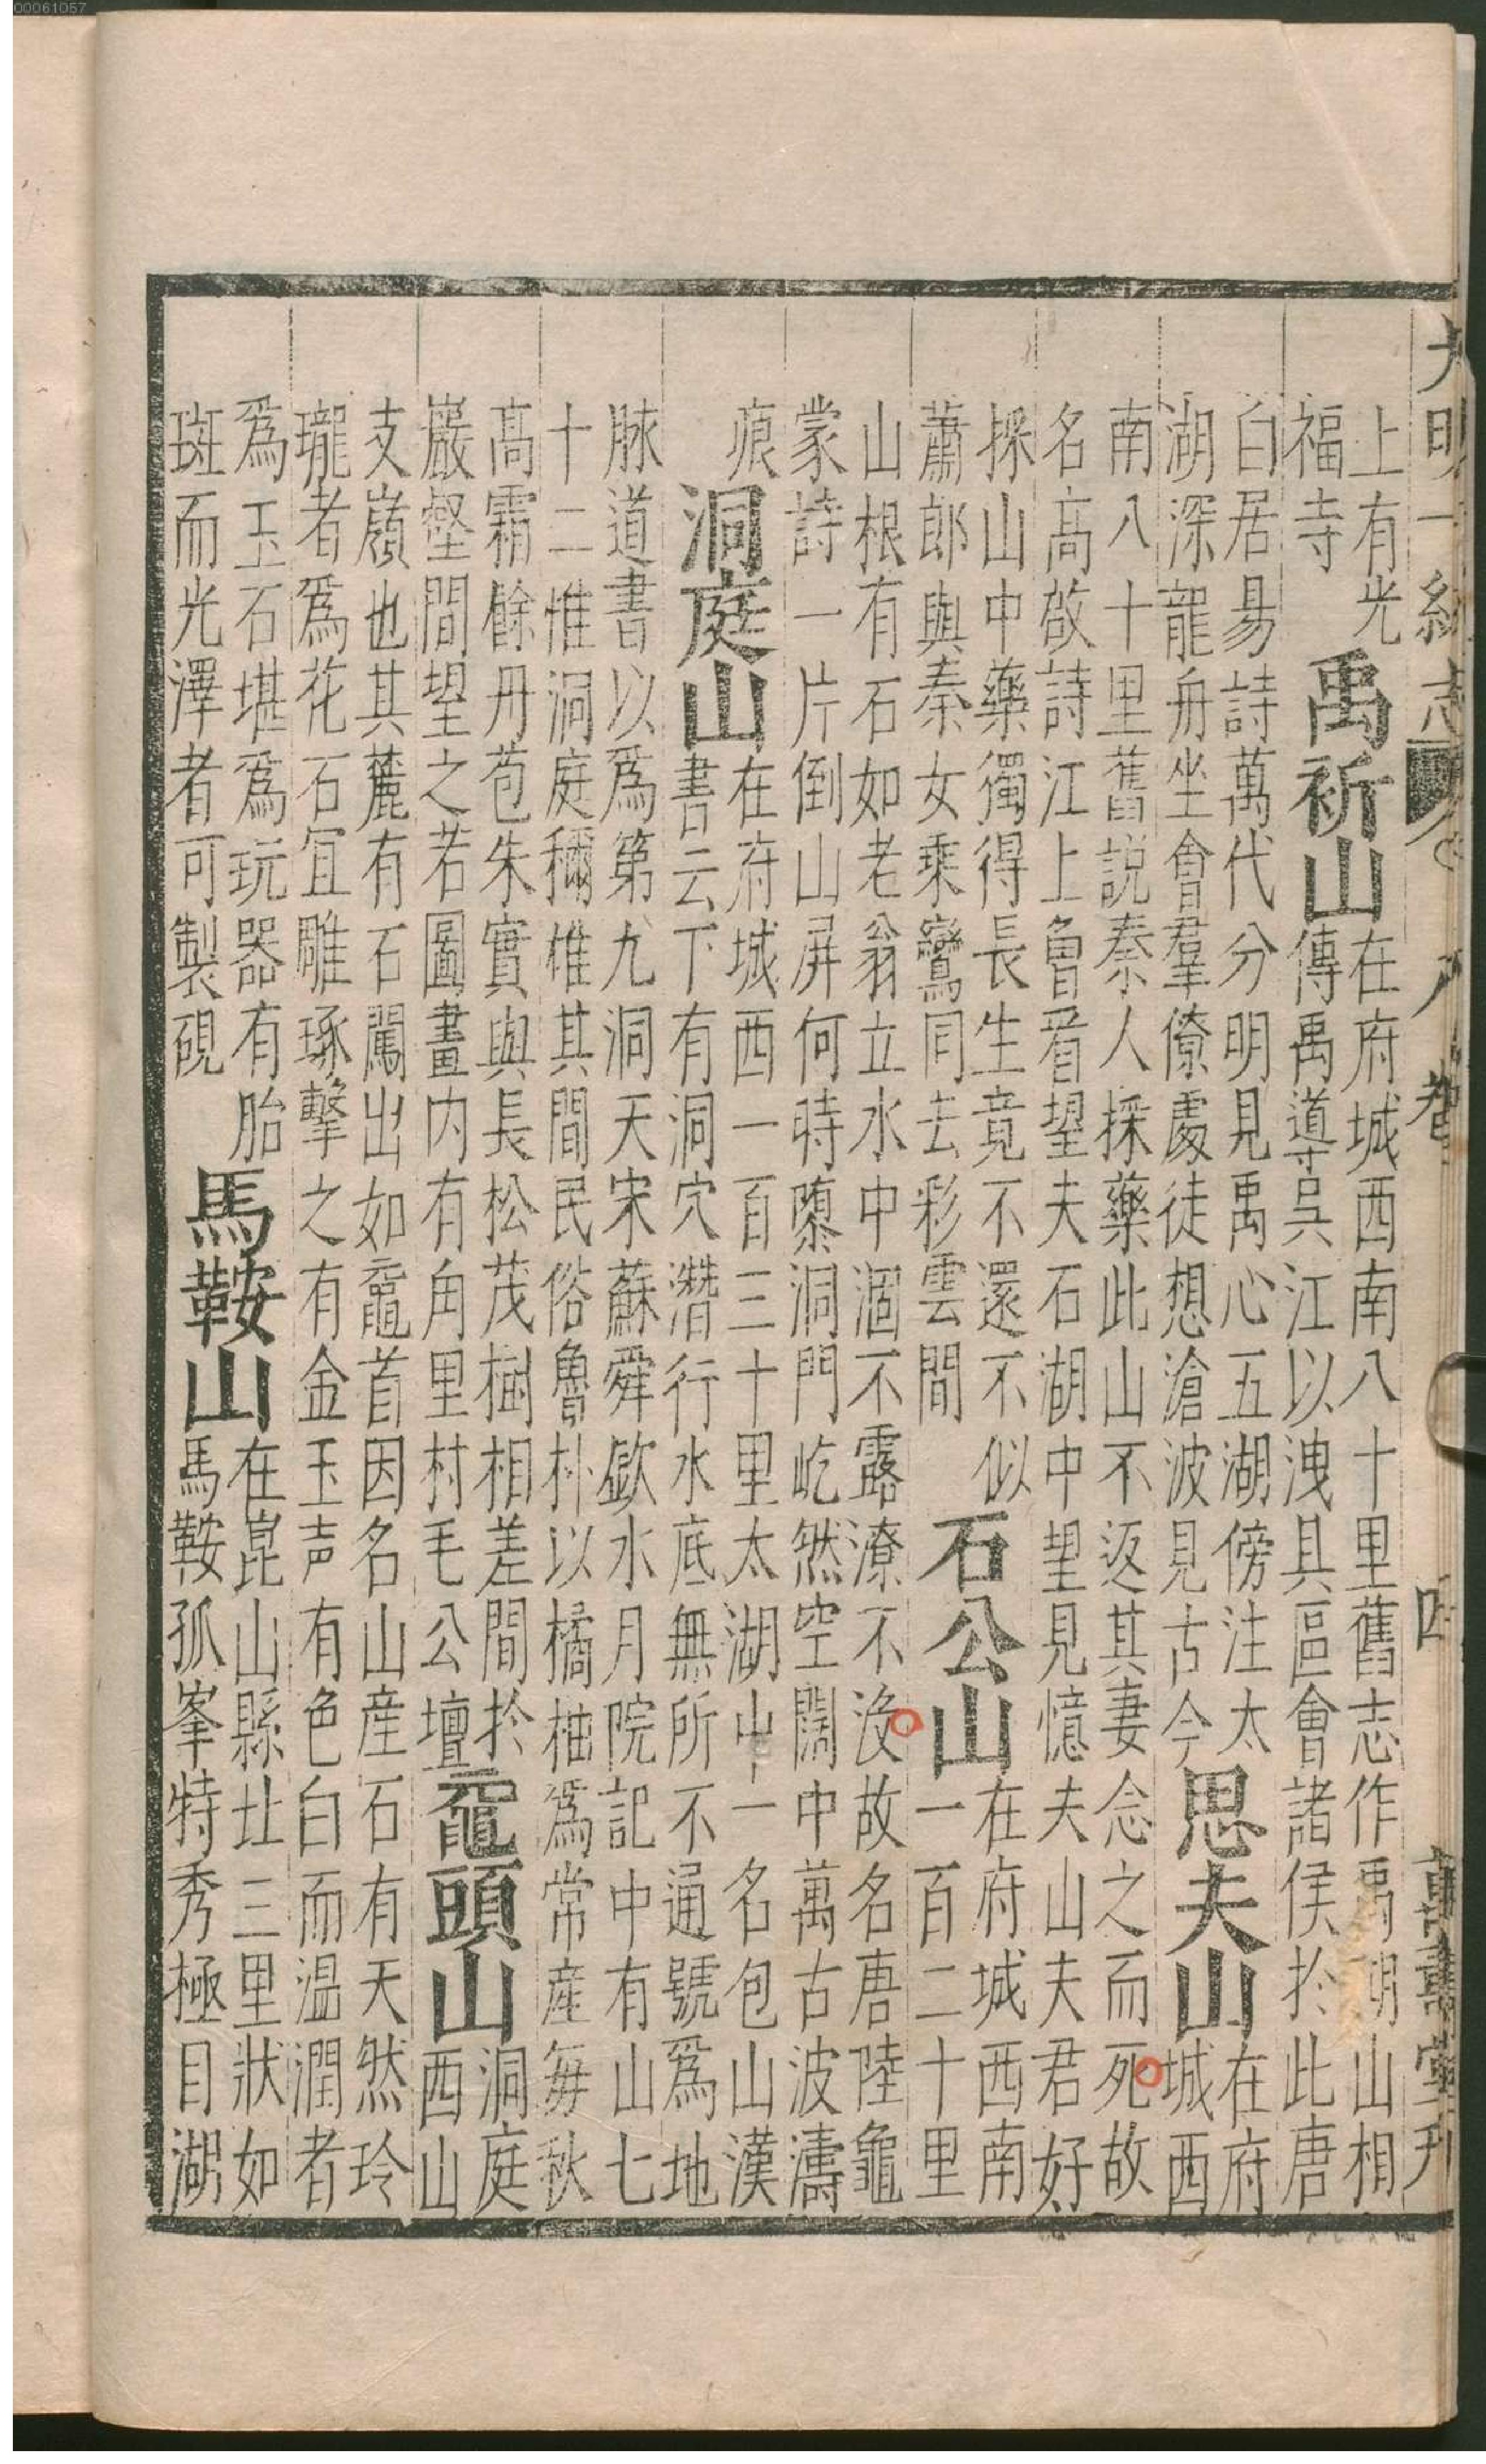 大明一統志
八卷
四
萬壽堂刋
上有光
福寺
禹祈山
在府城西南八十里舊志作禹期山相
傳禹導吳江以洩具區會諸侯於此唐
白居易詩萬代分明見禹心五湖傍注太
湖深龍舟坐會羣僚處徒想滄波見古今
思夫山
在府
城西
南八十里舊説秦人採藥此山不返其妻念之而死故
名高啟詩江上曾看望夫石湖中望見憶夫山夫君好
採山中藥獨得長生竟不還不似
蕭郎與秦女乘鸞同去彩雲間
石公山
在府城西南
一百二十里
山根有石如老翁立水中涸不露潦不沒故名唐陸龜
蒙詩一片倒山屏何時隳洞門屹然空闊中萬古波濤
痕
洞庭山
在府城西一百三十里太湖中一名包山漢
書云下有洞穴潛行水底無所不通號為地
脉道書以為第九洞天宋蘇舜欽水月院記中有山七
十二惟洞庭稱雄其間民俗魯朴以橘柚為常産每秋
高霜餘丹苞朱實與長松茂樹相差間於
巖壑間望之若圖畫内有角里村毛公壇
黿頭山
洞庭
西山
支嶺也其麓有石闖出如黿首因名山産石有天然玲
瓏者為花石冝雕琢擊之有金玉声有色白而温潤者
為玉石堪為玩器有胎
斑而光澤者可製硯
馬鞍山
在崑山縣北三里狀如
馬鞍孤峯特秀極目湖